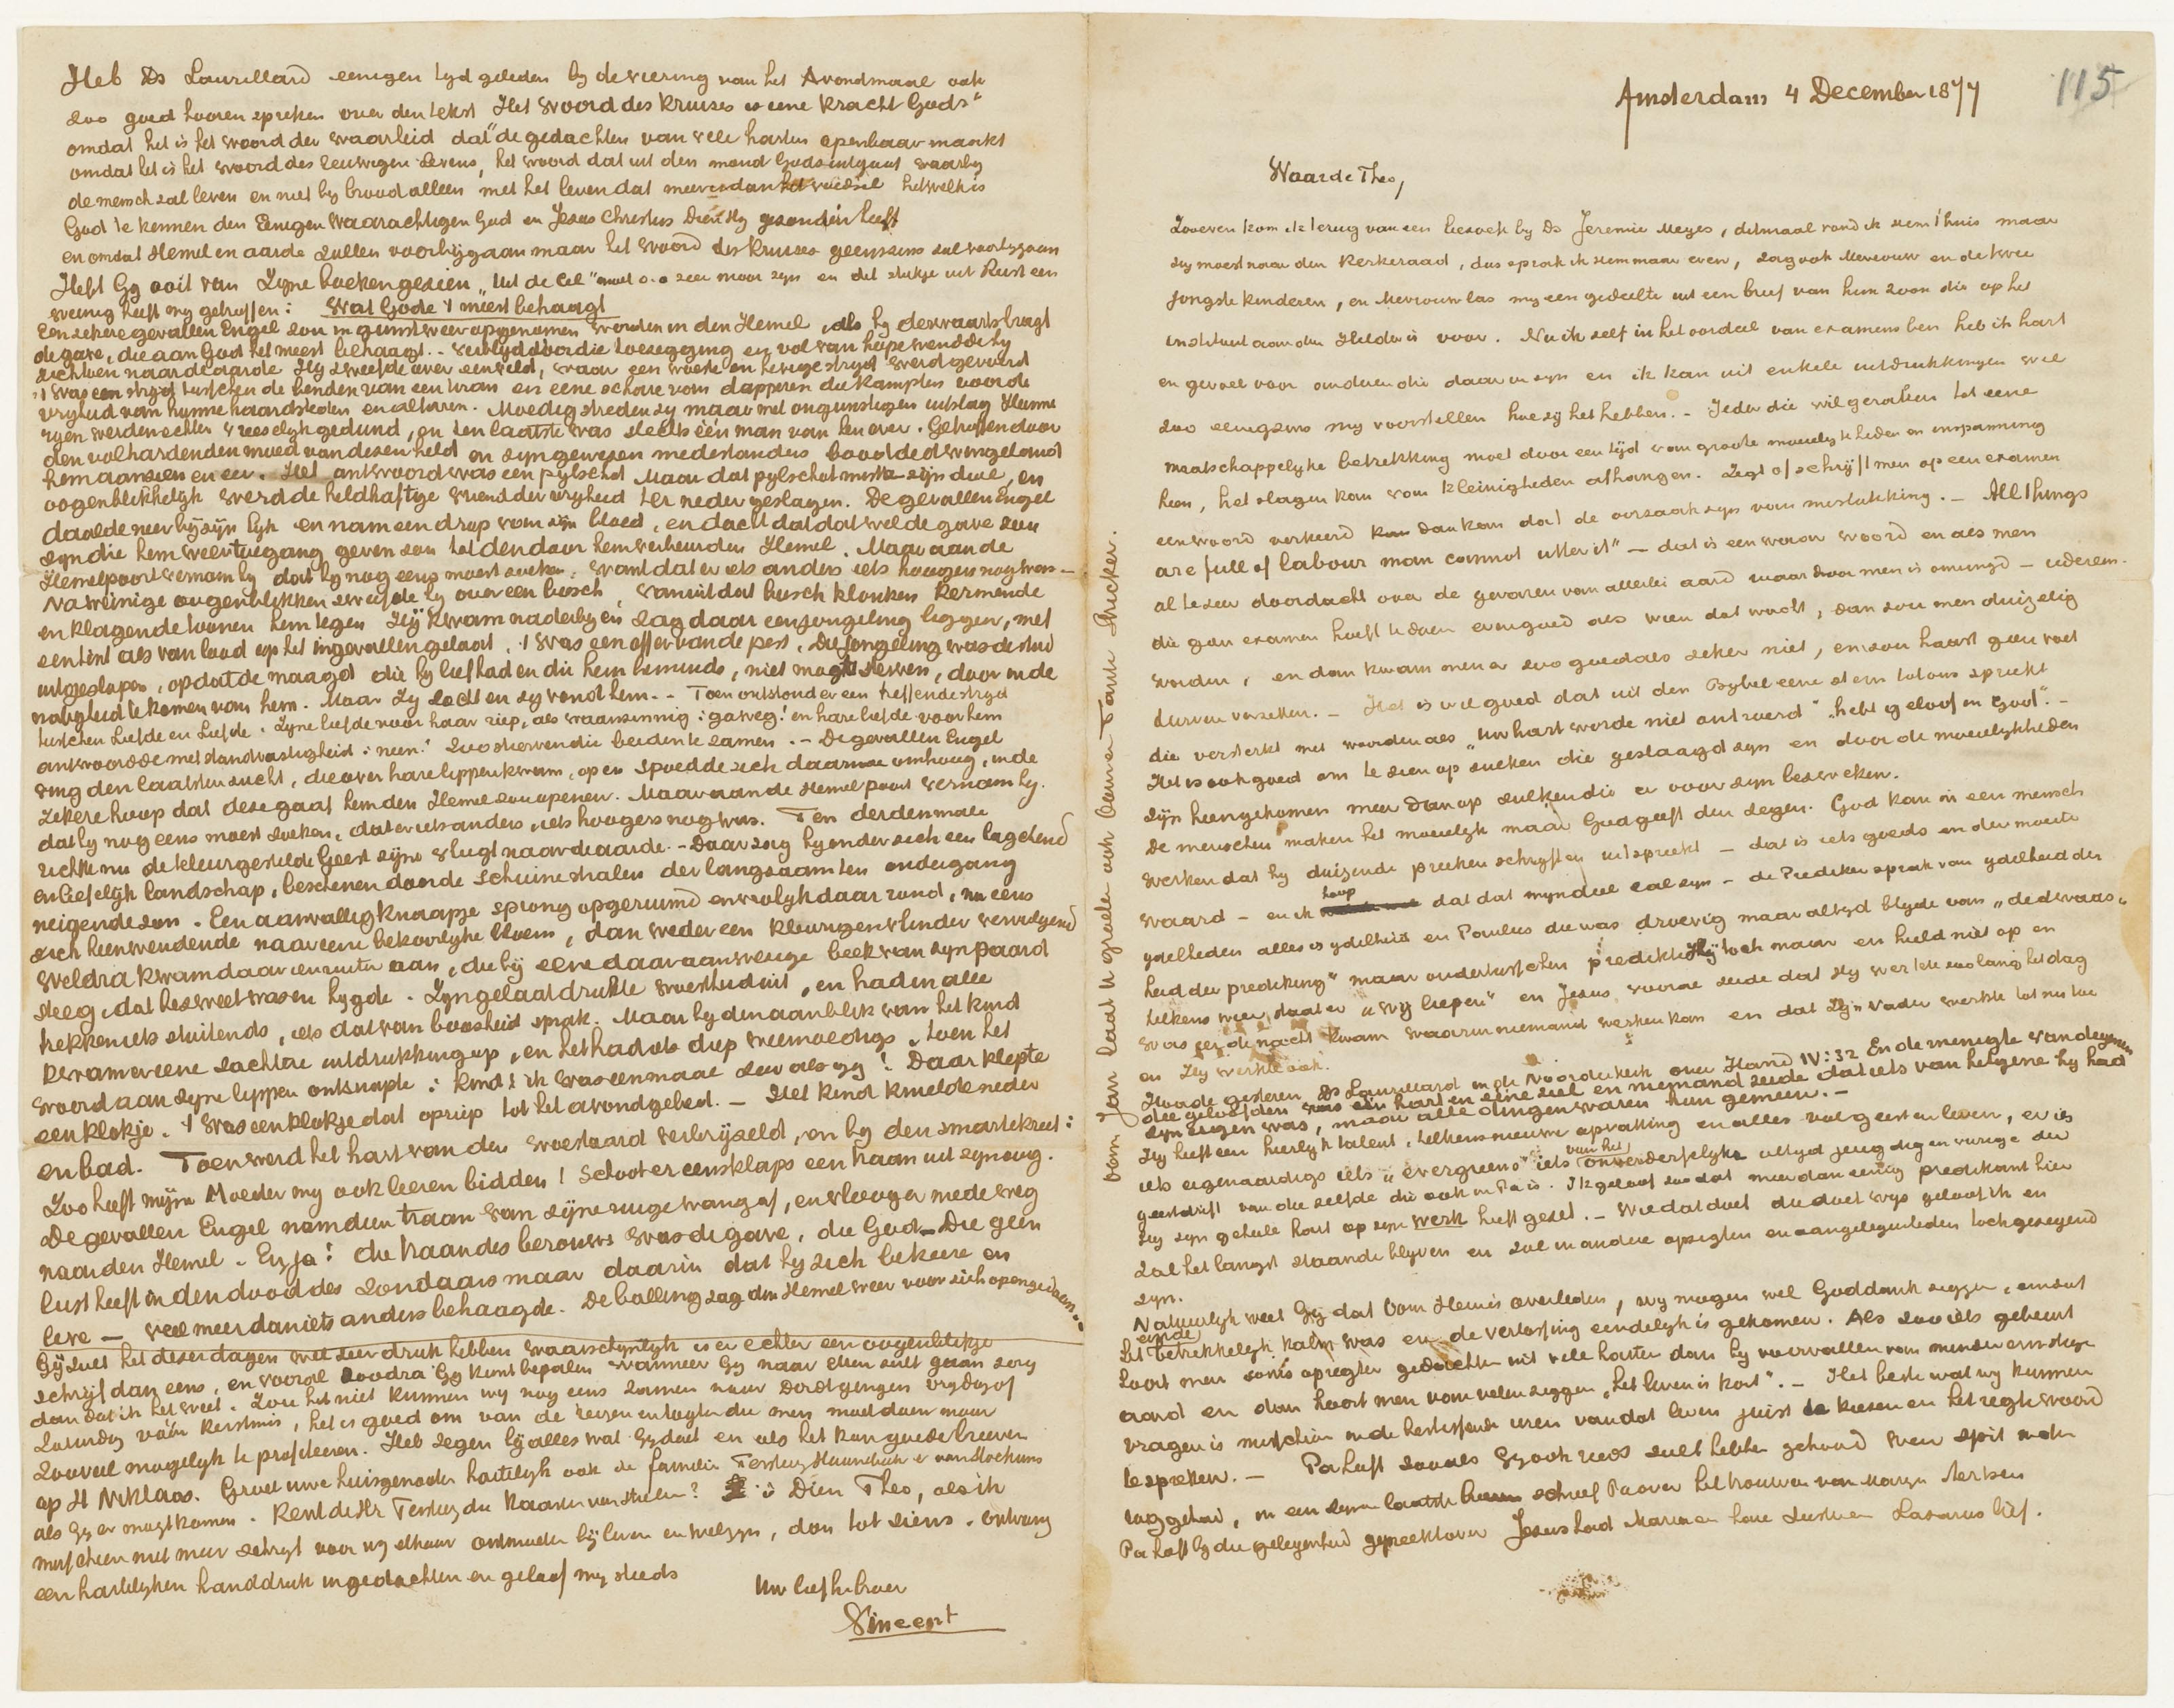 115
Amsterdam 4 December 1877
Waarde Theo,
Zooeven kom ik terug van een bezoek by Ds Jeremie Meyes, ditmaal vond ik hem t'huis maar
Hy moest naar den Kerkeraad, dus sprak ik hem maar even, zag ook Mevrouw en de twee
jongste kinderen, en Mevrouw las my een gedeelte uit een brief van hun zoon die op het
instituut aan den Helder is voor. Nu ik zelf in het oordeel van examens ben heb ik hart
en gevoel voor anderen die daar in zyn en ik kan uit enkele uitdrukkingen wel
zoo eenigzins my voorstellen hoe zij het hebben. - Ieder die wil geraken tot eene
maatschappelyke betrekking moet door een tijd van groote moeielykheden en inspanning
heen, het slagen kan van kleinigheden afhangen. Zegt of schrijft men op een examen
een woord verkeerd dan kan dat de oorzaak zyn van mislukking. - All things
are full of labour man cannot utter it" - dat is een waar woord en als men
al te zeer doordacht over de gevaren van allerlei aard waardoor men is omringd - iedereen
die geen examen hoeft te doen evengoed als wien dat wacht, dan zou men duizelig
worden, en dan kwam men er zoo goed als zeker niet, en zou haast geen voet
durven verzetten. - Het is wel goed dat uit den Bybel eene stem tot ons spreekt
die versterkt met woorden als „Uw hart worde niet ontroerd" „hebt geloof in God". -
Het is ook goed om te zien op zulken die geslaagd zyn en door de moeielykheden
zijn heengekomen meer dan op zulken die er voor zyn bezweken.
De menschen maken het moeielyk maar God geeft den zegen. God kan in een mensch
werken dat hy duizende preeken schryft en uitspreekt - dat is iets goeds en der moeite
waard - en ik hoop dat dat myn deel zal zyn - de Prediker sprak van ydelheid der
ydelheden alles is ydelheid en Paulus die was droevig maar altyd blyde van „de dwaas-
heid der prediking" maar ondertusschen predikte Hij toch maar en hield niet op en
telkens weer staat er „wij liepen" en Jezus vooral zeide dat Hy werkte zoo lang het dag
was eer de nacht kwam waarin niemand werken kan en dat Zijn Vader werkte tot nu toe
en Hy werkte ook.
Hoorde gisteren Ds Laurillard in de Noorderkerk over Hand IV:32 En de menigte van degenen
die geloofden was één hart en eéne ziel en niemand zeide dat iets van hetgene hy had
zyn eigen was, maar alle dingen waren hun gemeen. -
Hy heeft een heerlyk talent, telkens nieuwe opvatting en alles vol geest en leven, er is
iets eigenaardigs iets „evergreens" iets van het onverderfelyke altyd jeugdig en vurige der
geestdrift van die zelfde die ook in Pa is. Ik geloof zoo dat meer dan eenig predikant hier
Hij zyn geheele hart op zyn werk heeft gezet. - Wie dat doet die doet wys geloof ik en
zal het langst staande blyven en zal in andere opzigten en aangelegenheden toch gezegend
zyn.
Natuurlyk weet Gij dat Oom Hein is overleden, wy mogen wel Goddank zeggen, omdat
het einde betrekkelyk kalm was en de verlossing eindelyk is gekomen. Als zoo iets gebeurt
hoort men soms opregter gedachten uit vele harten dan by voorvallen van minder ernstige
aard en dan hoort men van velen zeggen „het leven is kort". - Het beste wat wy kunnen
vragen is misschien in de beslissende uren van dat leven juist te kiezen en het regte woord
te spreken. - Pa heeft zooals Gy ook reeds zult hebben gehoord weer spit in den
rug gehad, in een zyner laatste schreef Pa over het trouwen van Marijn Aertsen
Pa heeft by die gelegenheid gepreekt over Jezus had Maria en hare Zuster en Lazarus lief.
Oom Jan laat U groeten ook Oom en Tante Stricker.
Heb Ds Laurillard eenigen tyd geleden by de viering van het Avondmaal ook
zoo goed hooren spreken over den tekst Het woord des Kruises is eene kracht Gods"
omdat het is het woord der waarheid dat „de gedachten van vele harten openbaar maakt
omdat het is het woord des Eeuwigen Levens, het woord dat uit den mond Gods uitgaat waarby
de mensch zal leven en niet by brood alleen met het leven dat meer is dan het voedsel hetwelk is
God te kennen den Eenigen Waarachtigen God en Jezus Christus Dien Hy gezonden heeft
en omdat Hemel en aarde zullen voorbijgaan maar het woord des Kruises geenszins zal voorbygaan
Hebt Gy ooit van Zyne boeken gezien „Uit de Cel" moet o.a zeer mooi zyn en dit stukje uit Rust een
weinig heeft my getroffen: Wat Gode 't meest behaagt
Een zekere gevallen Engel zou in gunst weer opgenomen worden in den Hemel, als hy derwaarts bragt
de gave, die aan God het meest behaagt. - Verblyd door die toezegging en vol van hope wendde hy
zich toen naar de aarde Hy zweefde over een veld, waar een woeste en hevige stryd werd gevoerd
't was een stryd tusschen de benden van een tiran en eene schare van dapperen die kampten voor de
vryheid van hunne haardsteden en altaren. Moedig streden zy maar met ongunstigen uitslag Hunne
ryen werden echter vreeselyk gedund, en ten laatste was slechts één man van hen over. Getroffen door
den volhardenden moed van dezen held en zyn gewezen medestanders bood de dwingeland
hem aanzien en eer. Het antwoord was een pylschot Maar dat pylschot miste zijn doel, en
oogenblikkelyk werd de heldhaftige vriend der vryheid ter neder geslagen. De gevallen Engel
daalde neer bij zijn lyk en nam een drop van zyn bloed, en dacht dat dat wel de gave zou
zyn die hem weer toegang geven zou tot den door hem verbeurden Hemel. Maar aan de
Hemelpoort vernam hy dat hy nog eens moest zoeken. Want dat er iets anders iets hoogers nog was -
Na weinige oogenblikken zweefde hy over een bosch, vanuit dat bosch klonken kermende
en klagende toonen hem tegen Hij kwam naderby en zag daar een jongeling liggen, met
een tint als van lood op het ingevallen gelaat. 't Was een offer van de pest. Die jongeling was de stad
uitgeslopen, opdat de maagd die hy lief had en die hem beminde, niet mogt sterven, door in de
nabyheid te komen van hem. Maar Zy zocht en zy vond hem. - Toen ontstond er een treffende stryd
tusschen Liefde en Liefde. Zyne liefde voor haar riep, als waanzinnig: ga weg! en hare liefde voor hem
antwoordde met standvastigheid: neen! Zoo stierven die beiden te zamen. - De gevallen Engel
ving den laatsten zucht, die over hare lippen kwam, op en spoedde zich daarmee omhoog, in de
zekere hoop dat deze gaaf hem den Hemel zou openen. Maar aan de Hemelpoort vernam hy,
dat hy nog eens moest zoeken, dat er iets anders, iets hoogers nog was. Ten derdenmale
richtte nu de kleurgestelde Geest zijne vlugt naar de aarde. - Daar zag hy onder zich een lagchend
en liefelyk landschap, beschenen door de schuine stralen der langzaam ten ondergang
neigende zon. Een aanvallig knaapje sprong opgeruimd en vrolyk daar rond, nu eens
zich heenwendende naar eene bekoorlyke bloem, dan weder een kleurigen vlinder vervolgend
Weldra kwam daar een ruiter aan, die bij eene daar aanwezige beek van zyn paard
steeg, dat bezweet was en hygde. Zyn gelaat drukte woestheid uit, en had in alle
trekken iets stuitends, iets dat van boosheid sprak. Maar by den aanblik van het kind
kwam er eene zachtere uitdrukking op, en het had iets diep weemoedigs, toen het
woord aan zyne lippen ontsnapte: kind! ik was eenmaal zooals gy! Daar klepte
een klokje. 't Was een klokje dat opriep tot het avondgebed. - Het kind knielde neder
en bad. Toen werd het hart van den woestaard verbryzeld, en by den smartekreet:
Zoo heeft mijne Moeder my ook leeren bidden! schoot er eensklaps een traan uit zyn oog.
De gevallen Engel nam dien traan van zijne ruige wang af, en vloog er mede weg
naar den Hemel. En ja! die traan des berouws was de gave, die God - Die geen
lust heeft in den dood des zondaars maar daarin dat hy zich bekeere en
leve - veel meer dan iets anders behaagde. De balling zag den Hemel weer voor zich opengedaan...
Gij zult het dezer dagen wel zeer druk hebben waarschynlyk is er echter een oogenblikje
schryf dan eens, en vooral zoodra Gy kunt bepalen wanneer Gy naar Etten zult gaan zorg
dan dat ik het weet. Zou het niet kunnen wy nog eens zamen naar Dordt gingen Vrydag of
Zaturdag vóór Kerstmis, het is goed om van de reizen en togten die men moet doen maar
zooveel mogelyk te profiteeren. Heb zegen bij alles wat Gy doet en als het kan goede brieven
op St Niklaas. Groet uwe huisgenooten hartelyk ook de familie Tersteeg Haanebeek & van Stockum
als Gy er mogt komen. Kent de Hr Tersteeg die kaarten van Stieler? à Dieu Theo, als ik
misschien niet meer schryf voor wy elkaar ontmoeten bij leven en welzyn, dan tot ziens. ontvang
een hartelyken handdruk in gedachten en geloof my steeds
Uw liefh. broer
Vincent